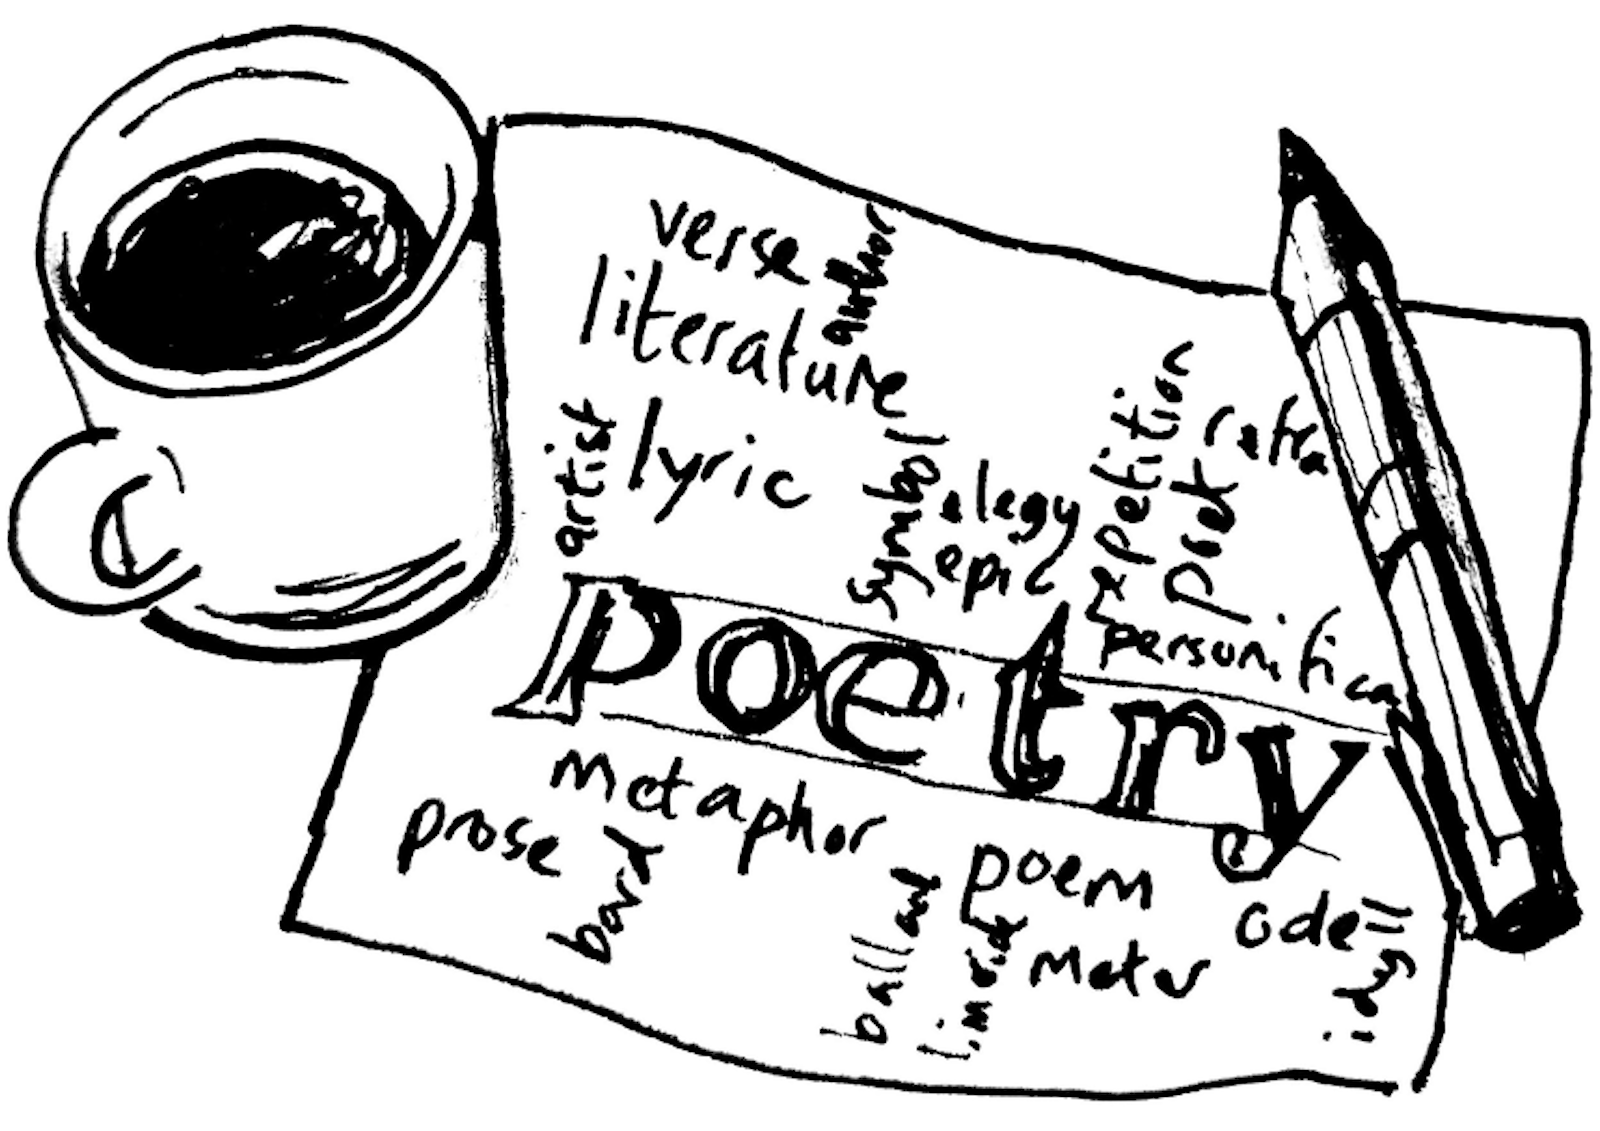 verse
author
literature
artist
lyric
symbol
elegy
epic
repetition
poet
refra
personifica
Poetry
metaphor
prose
bard
ballad
poem
limerick
meter
ode
idyll